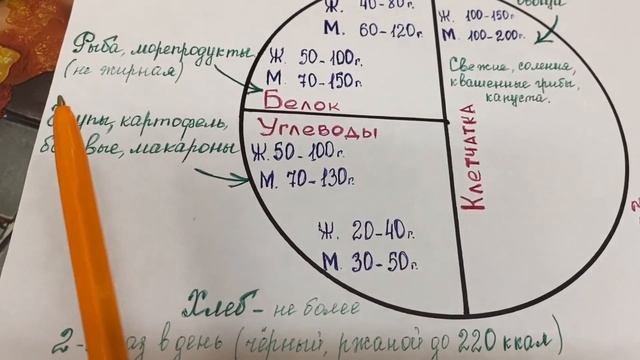 Ж. 40-80г.
М. 60-120г.
Рыба, морепродукты
(не жирная)
Ж. 50-100г.
М. 70-150г.
Белок
Ж. 100-150г.
М. 100-200г.
Свежие, соления,
квашенные грибы,
капуста.
Клетчатка
картофель,
макароны
Углеводы
Ж. 50-100г.
М. 70-130г.
Ж. 20-40г.
М. 30-50г.
Хлеб - не более
2- в день (чёрный, ржаной до 220 ккал)